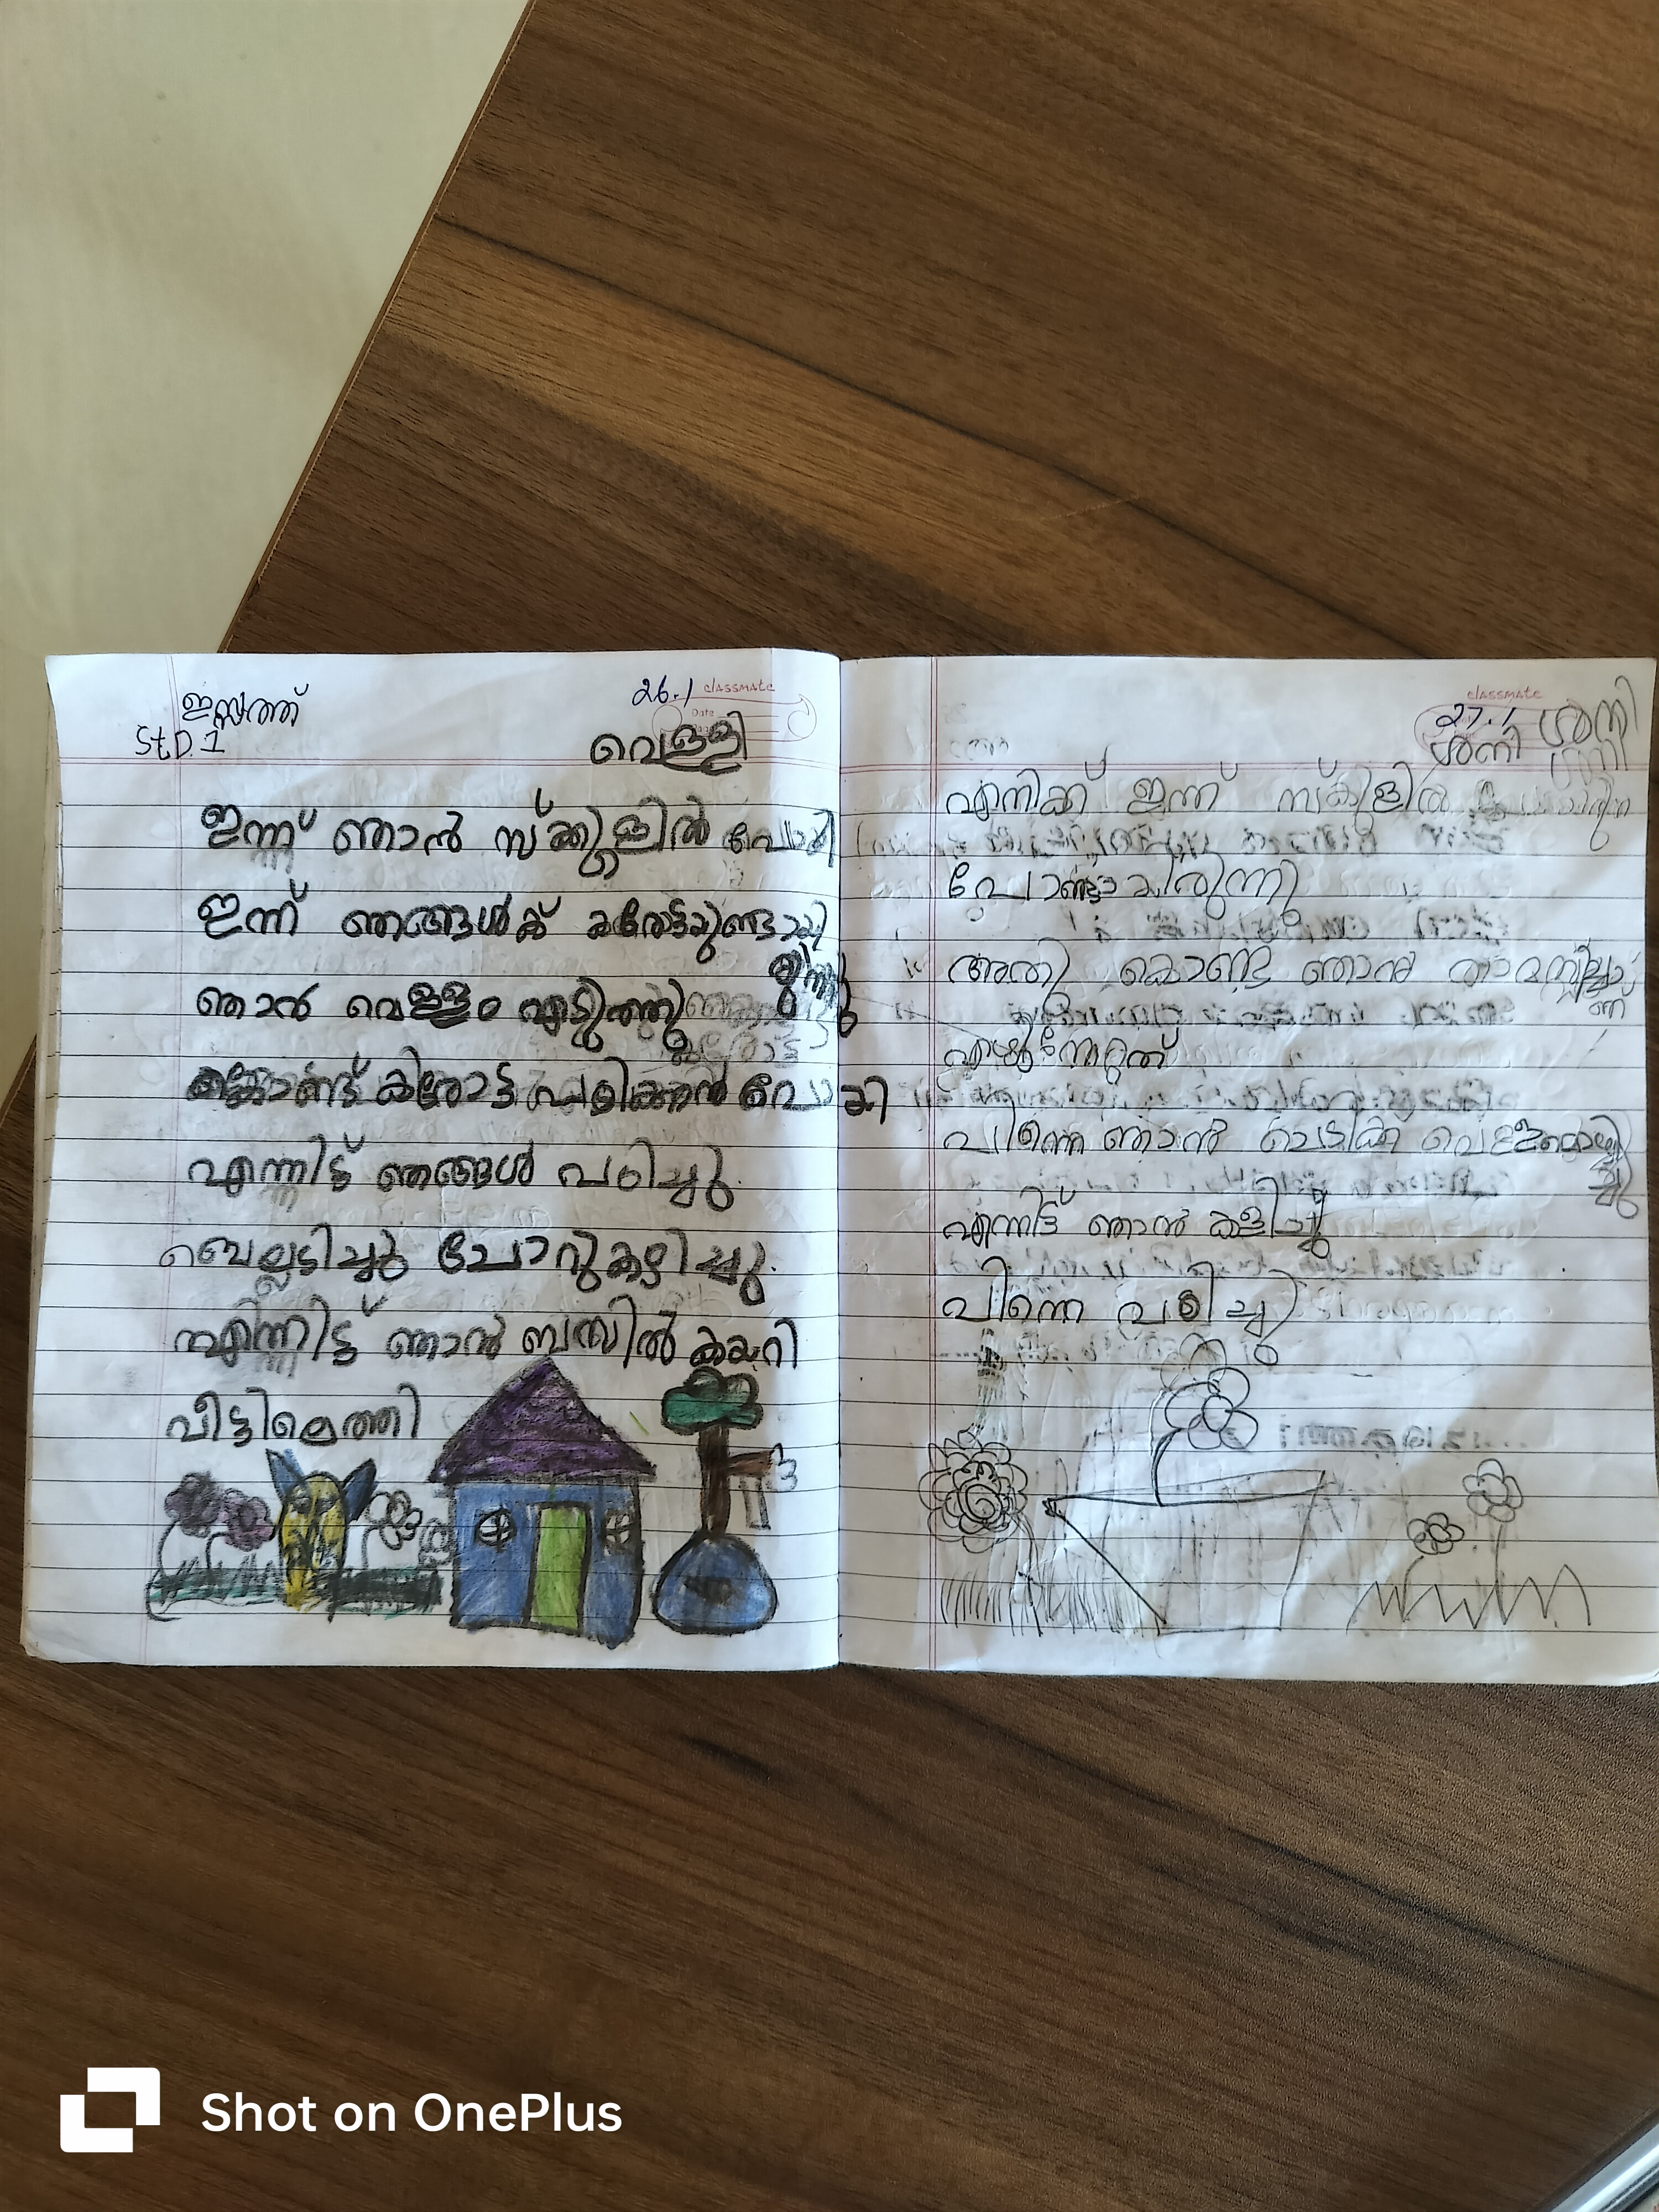 ഇസ്സത്ത്
Std. 1
26.1 classmate
Date
വെള്ളി
ഇന്ന് ഞാൻ സ്ക്കുളിൽ പോയി
ഇന്ന് ഞങ്ങൾക് കരോട്ടയുണ്ടായി
രുന്നു
ഞാൻ വെള്ളം എടുത്തു
കൊണ്ട് കരോട്ട പഠിക്കാൻ പോയി
എന്നിട്ട് ഞങ്ങൾ പഠിച്ചു.
ബെല്ലടിച്ചു ചോറുകഴിച്ചു.
എന്നിട്ട് ഞാൻ ബസിൽ കയറി
വീട്ടിലെത്തി
classmate
27.1
ശനി
എനിക്ക് ഇന്ന് സ്കുളിൽ
പോണ്ടായിരുന്നു
അതു കൊണ്ട് ഞാൻ
എഴുന്നേറ്റത്
പിന്നെ ഞാൻ ചെടിക്ക്
എന്നിട്ട് ഞാൻ കളിച്ചു
പിന്നെ പഠിച്ചു
Shot on OnePlus